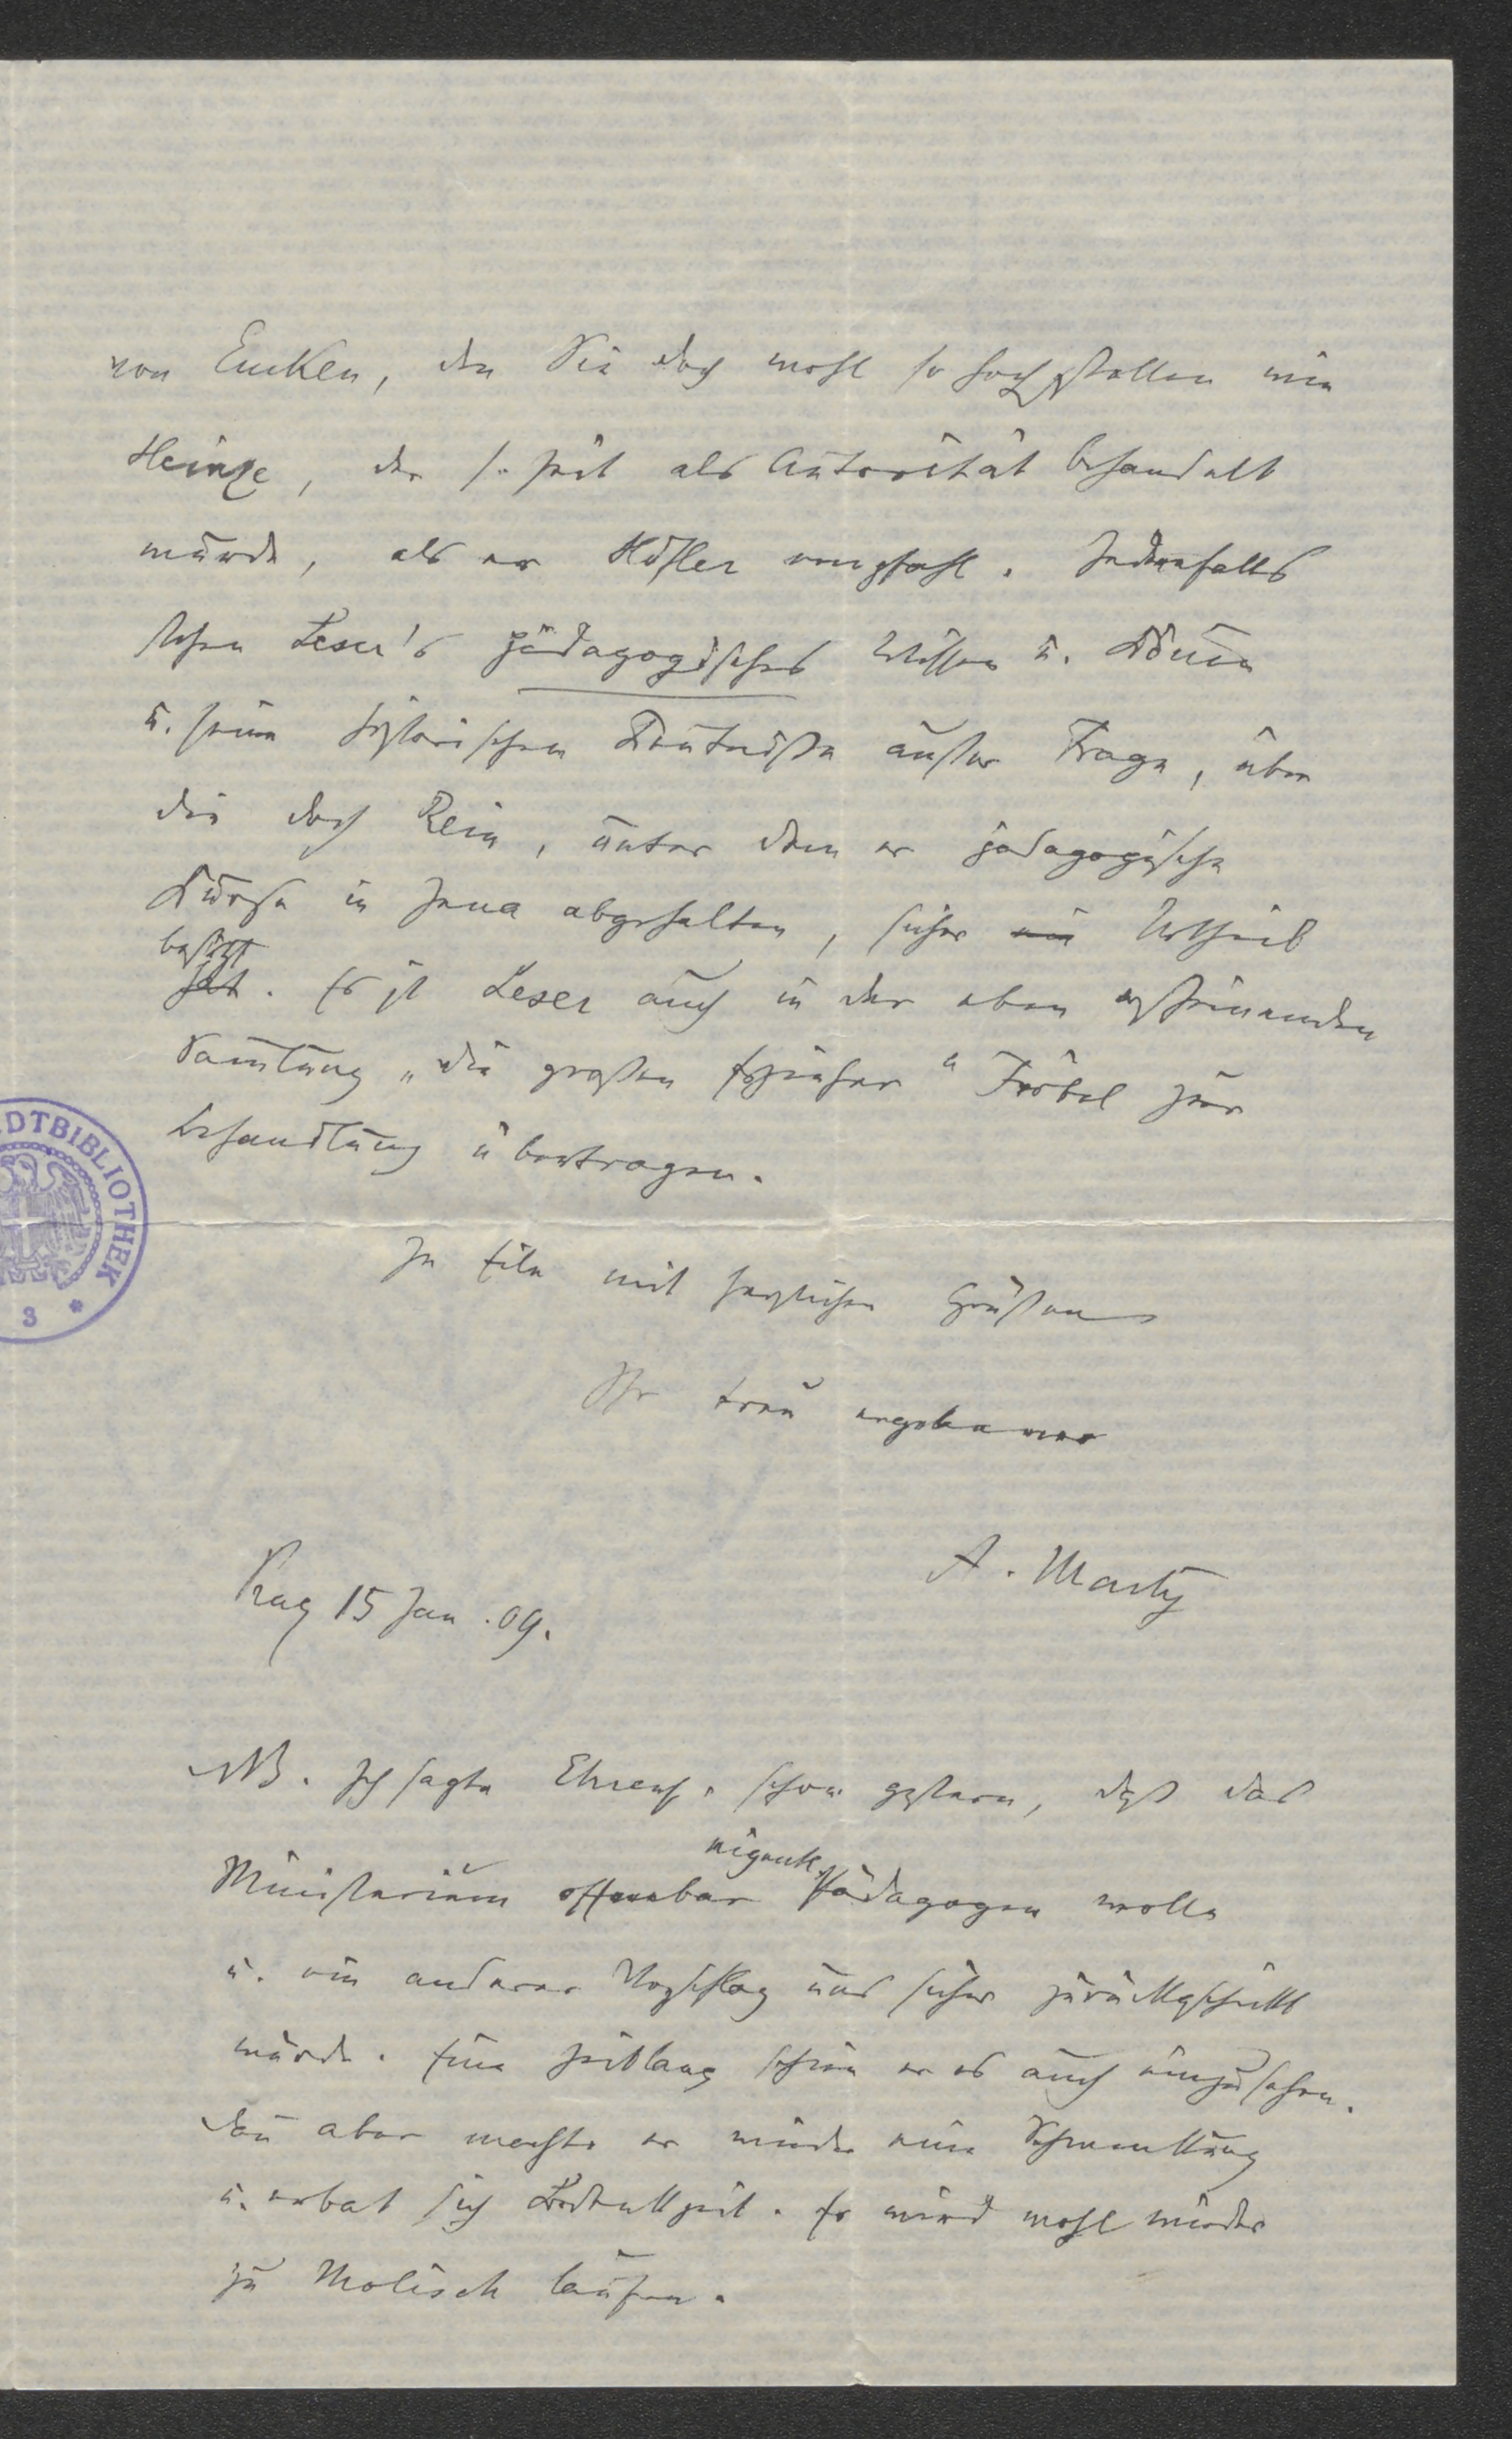 von Eucken, den Sie doch wohl so hoch stellen wie
Heinze, der s. Zeit als Autorität behandelt
wurde, als er Höfler empfahl. Jedenfalls
stehen Leser's pädagogisches Wissen u. Können
u. seine historischen Kentnisse außer Frage, über
die doch Rein, unter dem er pädagogische
Kurse in Jena abgehalten, sicher ein Urtheil
besitzt
hat. Es ist Leser auch in der eben erscheinenden
Samlung „die großen Erzieher“ Fröbel zur
Behandlung übertragen.
In Eile mit herzlichen Grüßen
Ihr treu ergebener
A. Marty
Prag 15 Jan. 09.
NB. Ich sagte Ehrenf. schon gestern, daß das
eigentl.
Ministerium offenbar Pädagogen wolle
u. ein anderer Vorschlag uns sicher zurückgeschickt
würde. Eine Zeitlang schien er es auch einzusehen.
Dan aber machte er wieder eine Schwenkung
u. erbat sich Bedenkzeit. Er wird wohl wieder
zu Molisch laufen.
DTBIBLIOTHEK
3